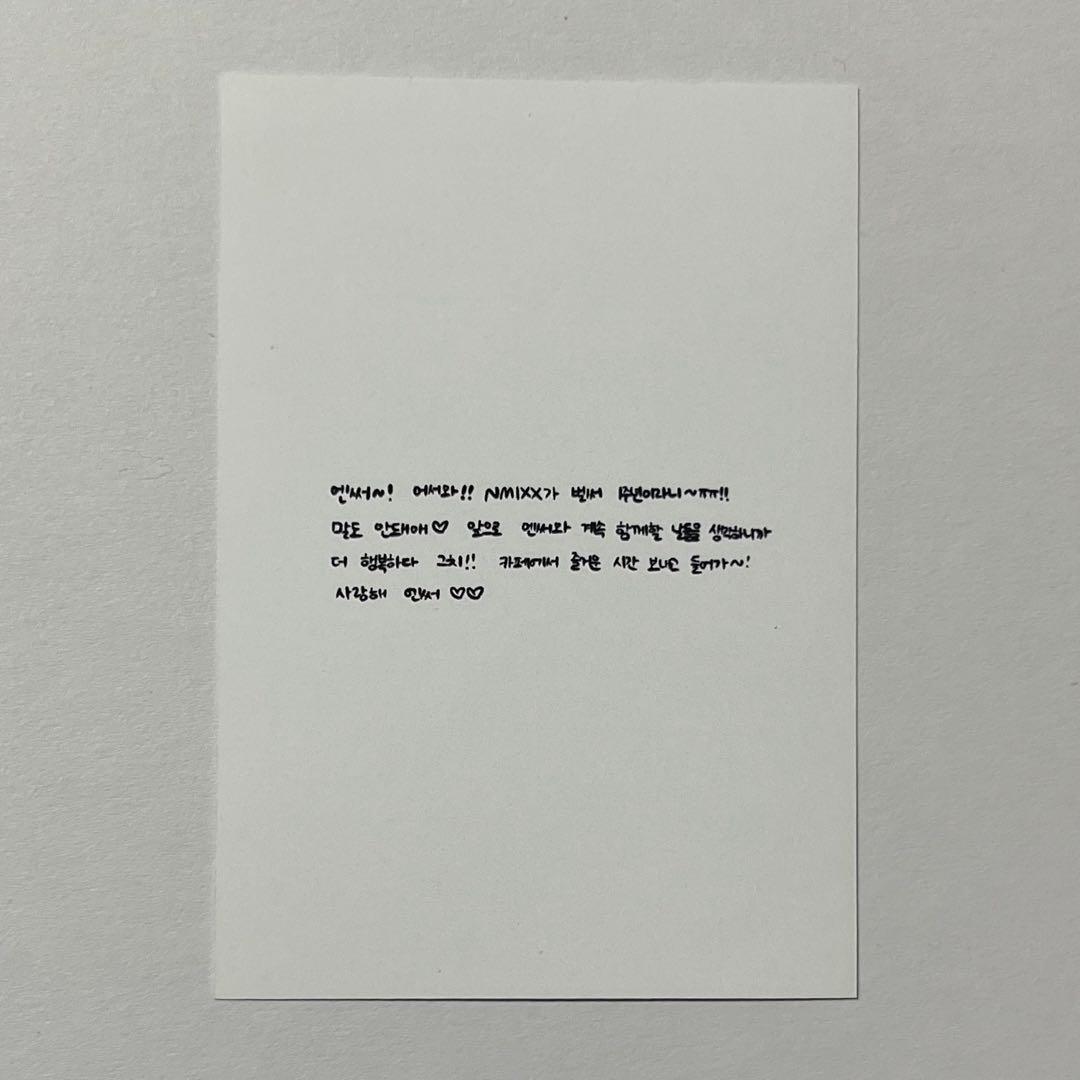 엔써~! 어서와!! NMIXX가 벌써 1주년이라니~ㅠㅠ!!
말도 안돼애♡ 앞으로 엔써와 계속 함께할 날들을 생각하니까
더 행복하다 그치!! 카페에서 즐거운 시간 보내고 들어가~!
사랑해 엔써 ♡♡